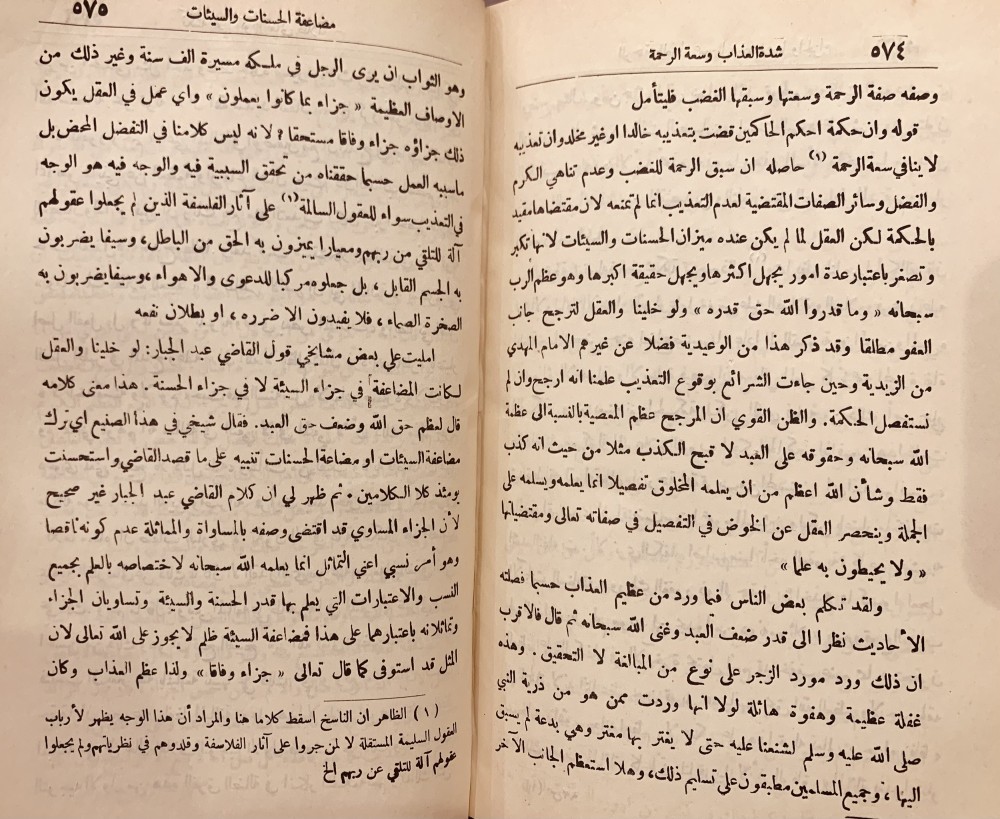 ٥٧٤ شدة العذاب وسعة الرحمة
وصفه صفة الرحمة وسعتها وسبقها الغضب فليتأمل
قوله وان حكمة احكم الحاكمين قضت بتعذيبه خالدا او غير مخلد وان تعذيبه
لا ينافي سعة الرحمة (١) حاصله ان سبق الرحمة للغضب وعدم تناهي الكرم
والفضل وسائر الصفات المقتضية لعدم التعذيب انما لم تمنعه لان مقتضاها مقيد
بالحكمة لكن العقل لما لم يكن عنده ميزان الحسنات والسيئات لانها تكبر
وتصغر باعتبار عدة امور يجهل اكثرها ويجهل حقيقة اكبرها وهو عظم الرب
سبحانه « وما قدروا الله حق قدره » ولو خلينا والعقل لترجح جانب
العفو مطلقا وقد ذكر هذا من الوعيدية فضلا عن غيرهم الامام المهدي
من الزيدية وحين جاءت الشرائع بوقوع التعذيب علمنا انه ارجح وان لم
نستفصل الحكمة. والظن القوي ان المرجح عظم المعصية بالنسبة الى عظمة
الله سبحانه وحقوقه على العبد لا قبح الكذب مثلا من حيث انه كذب
فقط وشأن الله اعظم من ان يعلمه المخلوق تفصيلا انما يعلمه ويسلمه على
الجملة وينحصر العقل عن الخوض في التفصيل في صفاته تعالى ومقتضياتها
« ولا يحيطون به علما »
ولقد تكلم بعض الناس فيما ورد من عظيم العذاب حسبما فصلته
الأحاديث نظرا الى قدر ضعف العبد وغنى الله سبحانه ثم قال فالاقرب
ان ذلك ورد مورد الزجر على نوع من المبالغة لا التحقيق. وهذه
غفلة عظيمة وهفوة هائلة لولا انها وردت ممن هو من ذرية النبي
صلى الله عليه وسلم لشنعنا عليه حتى لا يغتر بها مغتر وهي بدعة لم يسبق
اليها ، وجميع المسلمين مطبقون على تسليم ذلك، وهلا استعظم الجانب الآخر
مضاعفة الحسنات والسيئات ٥٧٥
وهو الثواب ان يرى الرجل في ملكه مسيرة الف سنة وغير ذلك من
الاوصاف العظيمة « جزاء بما كانوا يعملون » واي عمل في العقل يكون
ذلك جزاؤه جزاء وفاقا مستحقا؟ لانه ليس كلامنا في التفضل المحض بل
ماسبيه العمل حسبما حققناه من تحقق السببية فيه والوجه فيه هو الوجه
في التعذيب سواء للعقول السالمة (١) على آثار الفلسفة الذين لم يجعلوا عقولهم
آلة للتلقي من ربهم ومعيارا يميزون به الحق من الباطل، وسيفا يضربون
به الجسم القابل ، بل جعلوه مركبا للدعوى والاهواء، وسيفا يضربون به
الصخرة الصماء ، فلا يفيدون الا ضرره ، او بطلان نفعه
امليت على بعض مشايخي قول القاضي عبد الجبار: لو خلينا والعقل
لكانت المضاعفة في جزاء السيئة لا في جزاء الحسنة . هذا معنى كلامه
قال لعظم حق الله وضعف حق العبد. فقال شيخي في هذا الصنيع اي ترك
مضاعفة السيئات او مضاعة الحسنات تنبيه على ما قصد القاضي واستحسنت
يومئذ كلا الكلامين . ثم ظهر لي ان كلام القاضي عبد الجبار غير صحيح
لأن الجزاء المساوي قد اقتضى وصفه بالمساواة والمماثلة عدم كونه ناقصا
وهو أمر نسبي اعني التماثل انما يعلمه الله سبحانه لاختصاصه بالعلم بجميع
النسب والاعتبارات التي يعلم بها قدر الحسنة والسيئة وتساويان الجزاء
وتماثلانه باعتبارهما على هذا فمضاعفة السيئة ظلم لا يجوز على الله تعالى لان
المثل قد استوفى كما قال تعالى « جزاء وفاقا » ولذا عظم العذاب وكان
(١) الظاهر ان الناسخ اسقط كلاما هنا والمراد أن هذا الوجه يظهر لأرباب
العقول السليمة المستقلة لا لمن جروا على آثار الفلاسفة وقلدوهم في نظرياتهم ولم يجعلوا
عقولهم آلة للتلقي عن ربهم الخ